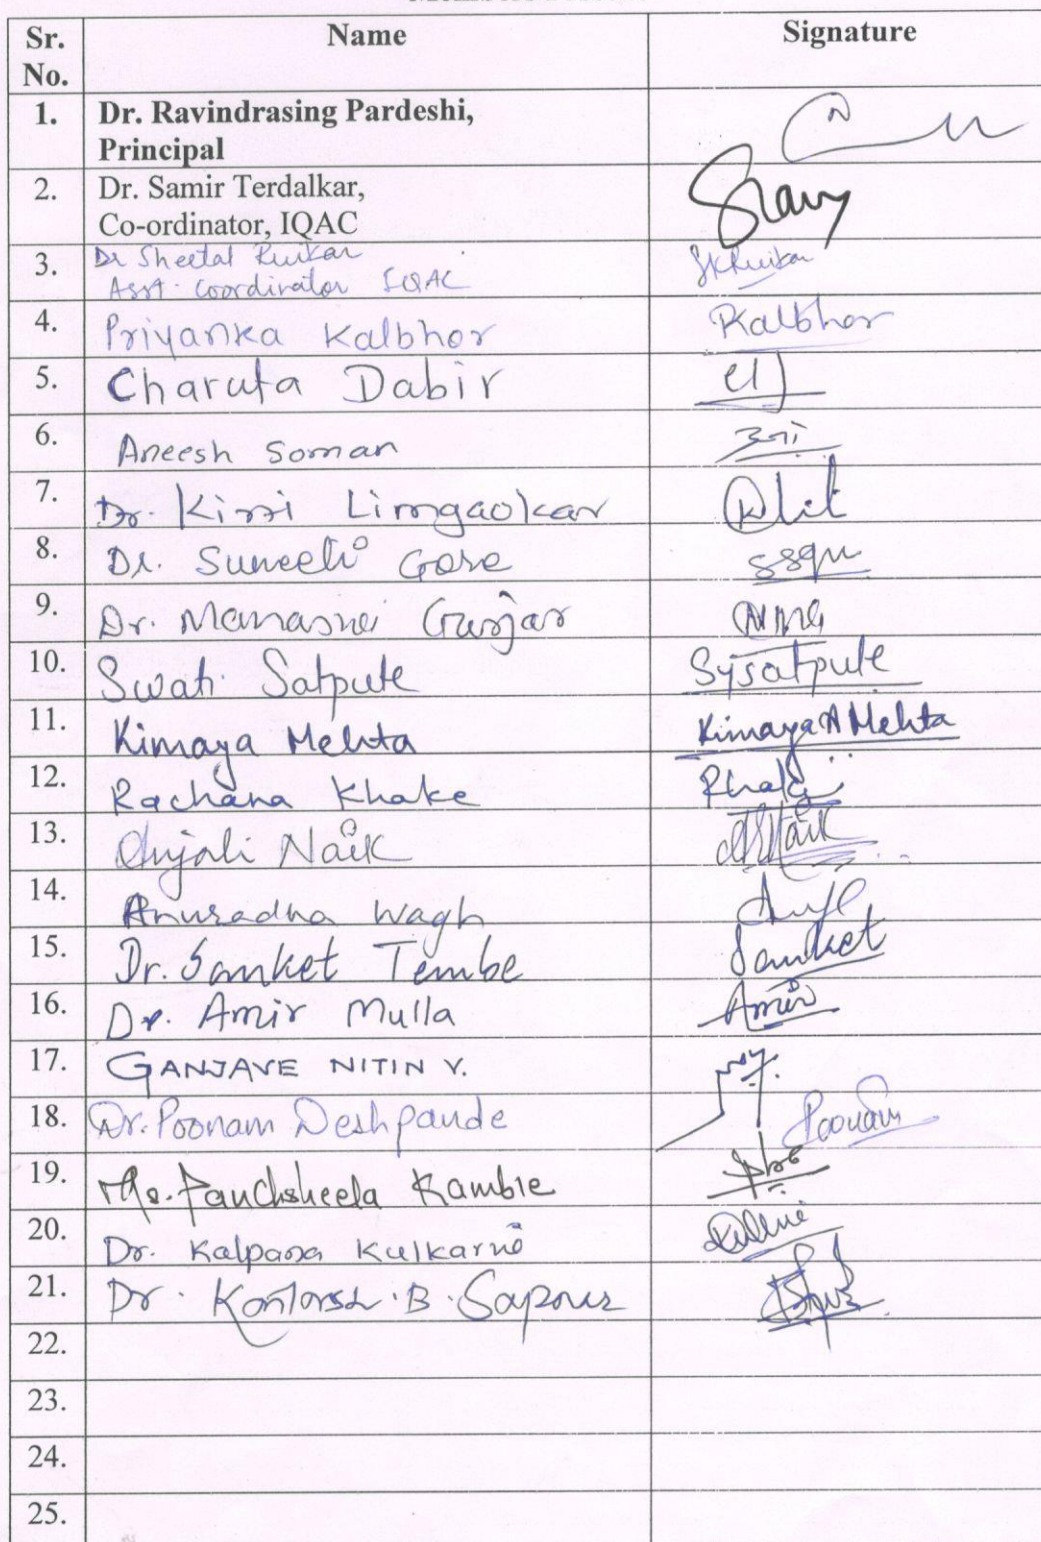 Sr. No. Name Signature
1. Dr. Ravindrasing Pardeshi,
Principal
2. Dr. Samir Terdalkar,
Co-ordinator, IQAC
3. Dr Sheetal Ruikar SKRuikar
Asst. Coordinator IQAC
4. Priyanka Kalbhor PKalbhor
5. Charuta Dabir
6. Aneesh Soman
7. Dr. Kirri Limgaokar
8. Dr. Suneeti Gore
9. Dr. Manasvei Gurjar
10. Swati Satpute Sysatpute
11. Kimaya Mehta Kimaya A Mehta
12. Rachana Khake
13. Anjali Naik
14. Anuradha Wagh
15. Dr. Sanket Tembe Sanket
16. Dr. Amir Mulla Amir
17. GANJAVE NITIN V.
18. Dr. Poonam Deshpande Poonam
19. Ms. Panchsheela Kamble
20. Dr. Kalpana Kulkarni
21. Dr. B.
22.
23.
24.
25.